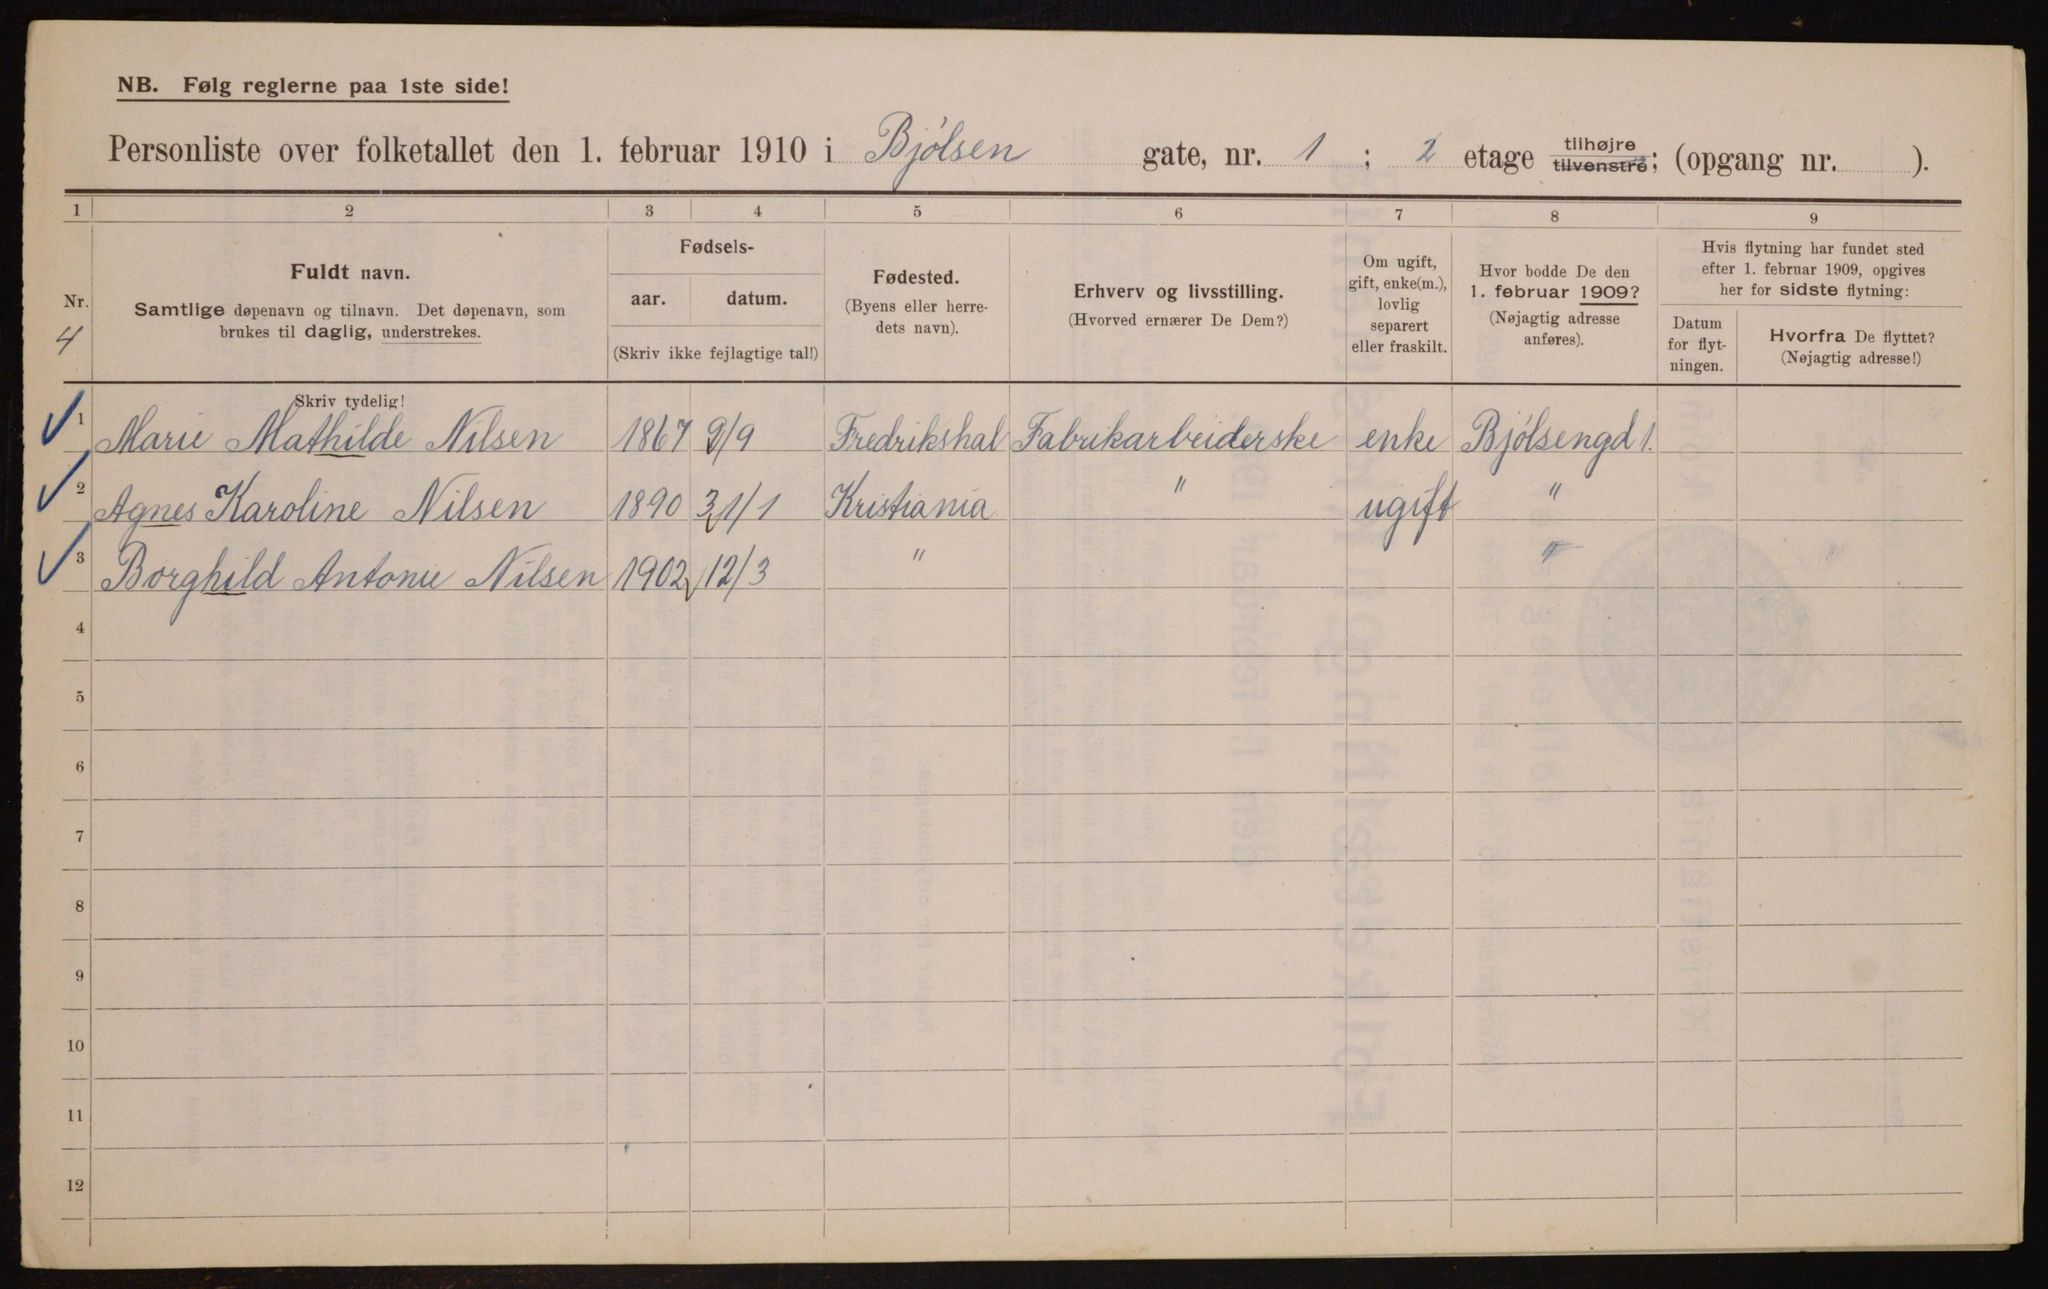 NB. Følg reglerne paa 1ste side!
Personliste over folketallet den 1. februar 1910 i Bjølsen gate, nr. 1 ; 2 etage tilhøjre tilvenstre; (opgang nr. ).
1 2 3 4 5 6 7 8 9
Nr. 4
Fuldt navn.
Samtlige døpenavn og tilnavn. Det døpenavn, som
brukes til daglig, understrekes.
Fødsels-
aar. datum.
(Skriv ikke fejlagtige tal!)
Fødested.
(Byens eller herre-
dets navn).
Erhverv og livsstilling.
(Hvorved ernærer De Dem?)
Om ugift,
gift, enke(m.),
lovlig
separert
eller fraskilt.
Hvor bodde De den
1. februar 1909?
(Nøjagtig adresse
anføres).
Hvis flytning har fundet sted
efter 1. februar 1909, opgives
her for sidste flytning:
Datum
for flyt-
ningen.
Hvorfra De flyttet?
(Nøjagtig adresse!)
Skriv tydelig!
1 Marie Mathilde Nilsen 1867 9/9 Fredrikshal Fabrikarbeiderske enke Bjølsengd 1.
2 Agnes Karoline Nilsen 1890 31/1 Kristiania " ugift "
3 Borghild Antonie Nilsen 1902 12/3 " "
4
5
6
7
8
9
10
11
12